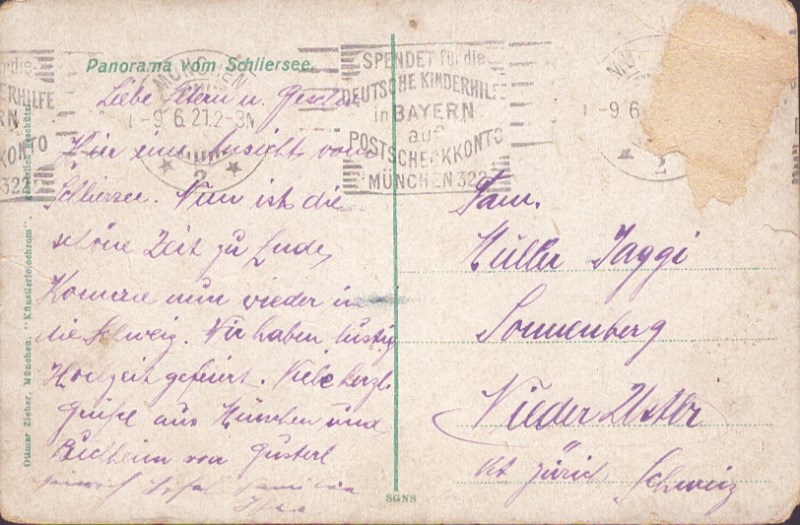 Panorama vom Schliersee.
MÜNCHEN
-9.6.21.2-3N
2
SPENDET für die
DEUTSCHE KINDERHILFE
in BAYERN
auf
POSTSCHECKKONTO
MÜNCHEN 322
für die
ERHILFE
RN
KONTO
322
-9.6
2
Liebe Eltern u. Geschw.
Hier eine Ansicht vom
Schliersee. Nun ist die
schöne Zeit zu Ende,
Komme nun wieder in
die Schweiz. Wir haben lustig
Hochzeit gefeiert. Viele herzl.
Grüße aus München und
von Gusterl
Fam.
Müller Jaggi
Sonnenberg
Nieder Uster
Kt Zürich Schweiz
Ottmar Zieher, München. "Künstlerisochrom".
SGNS